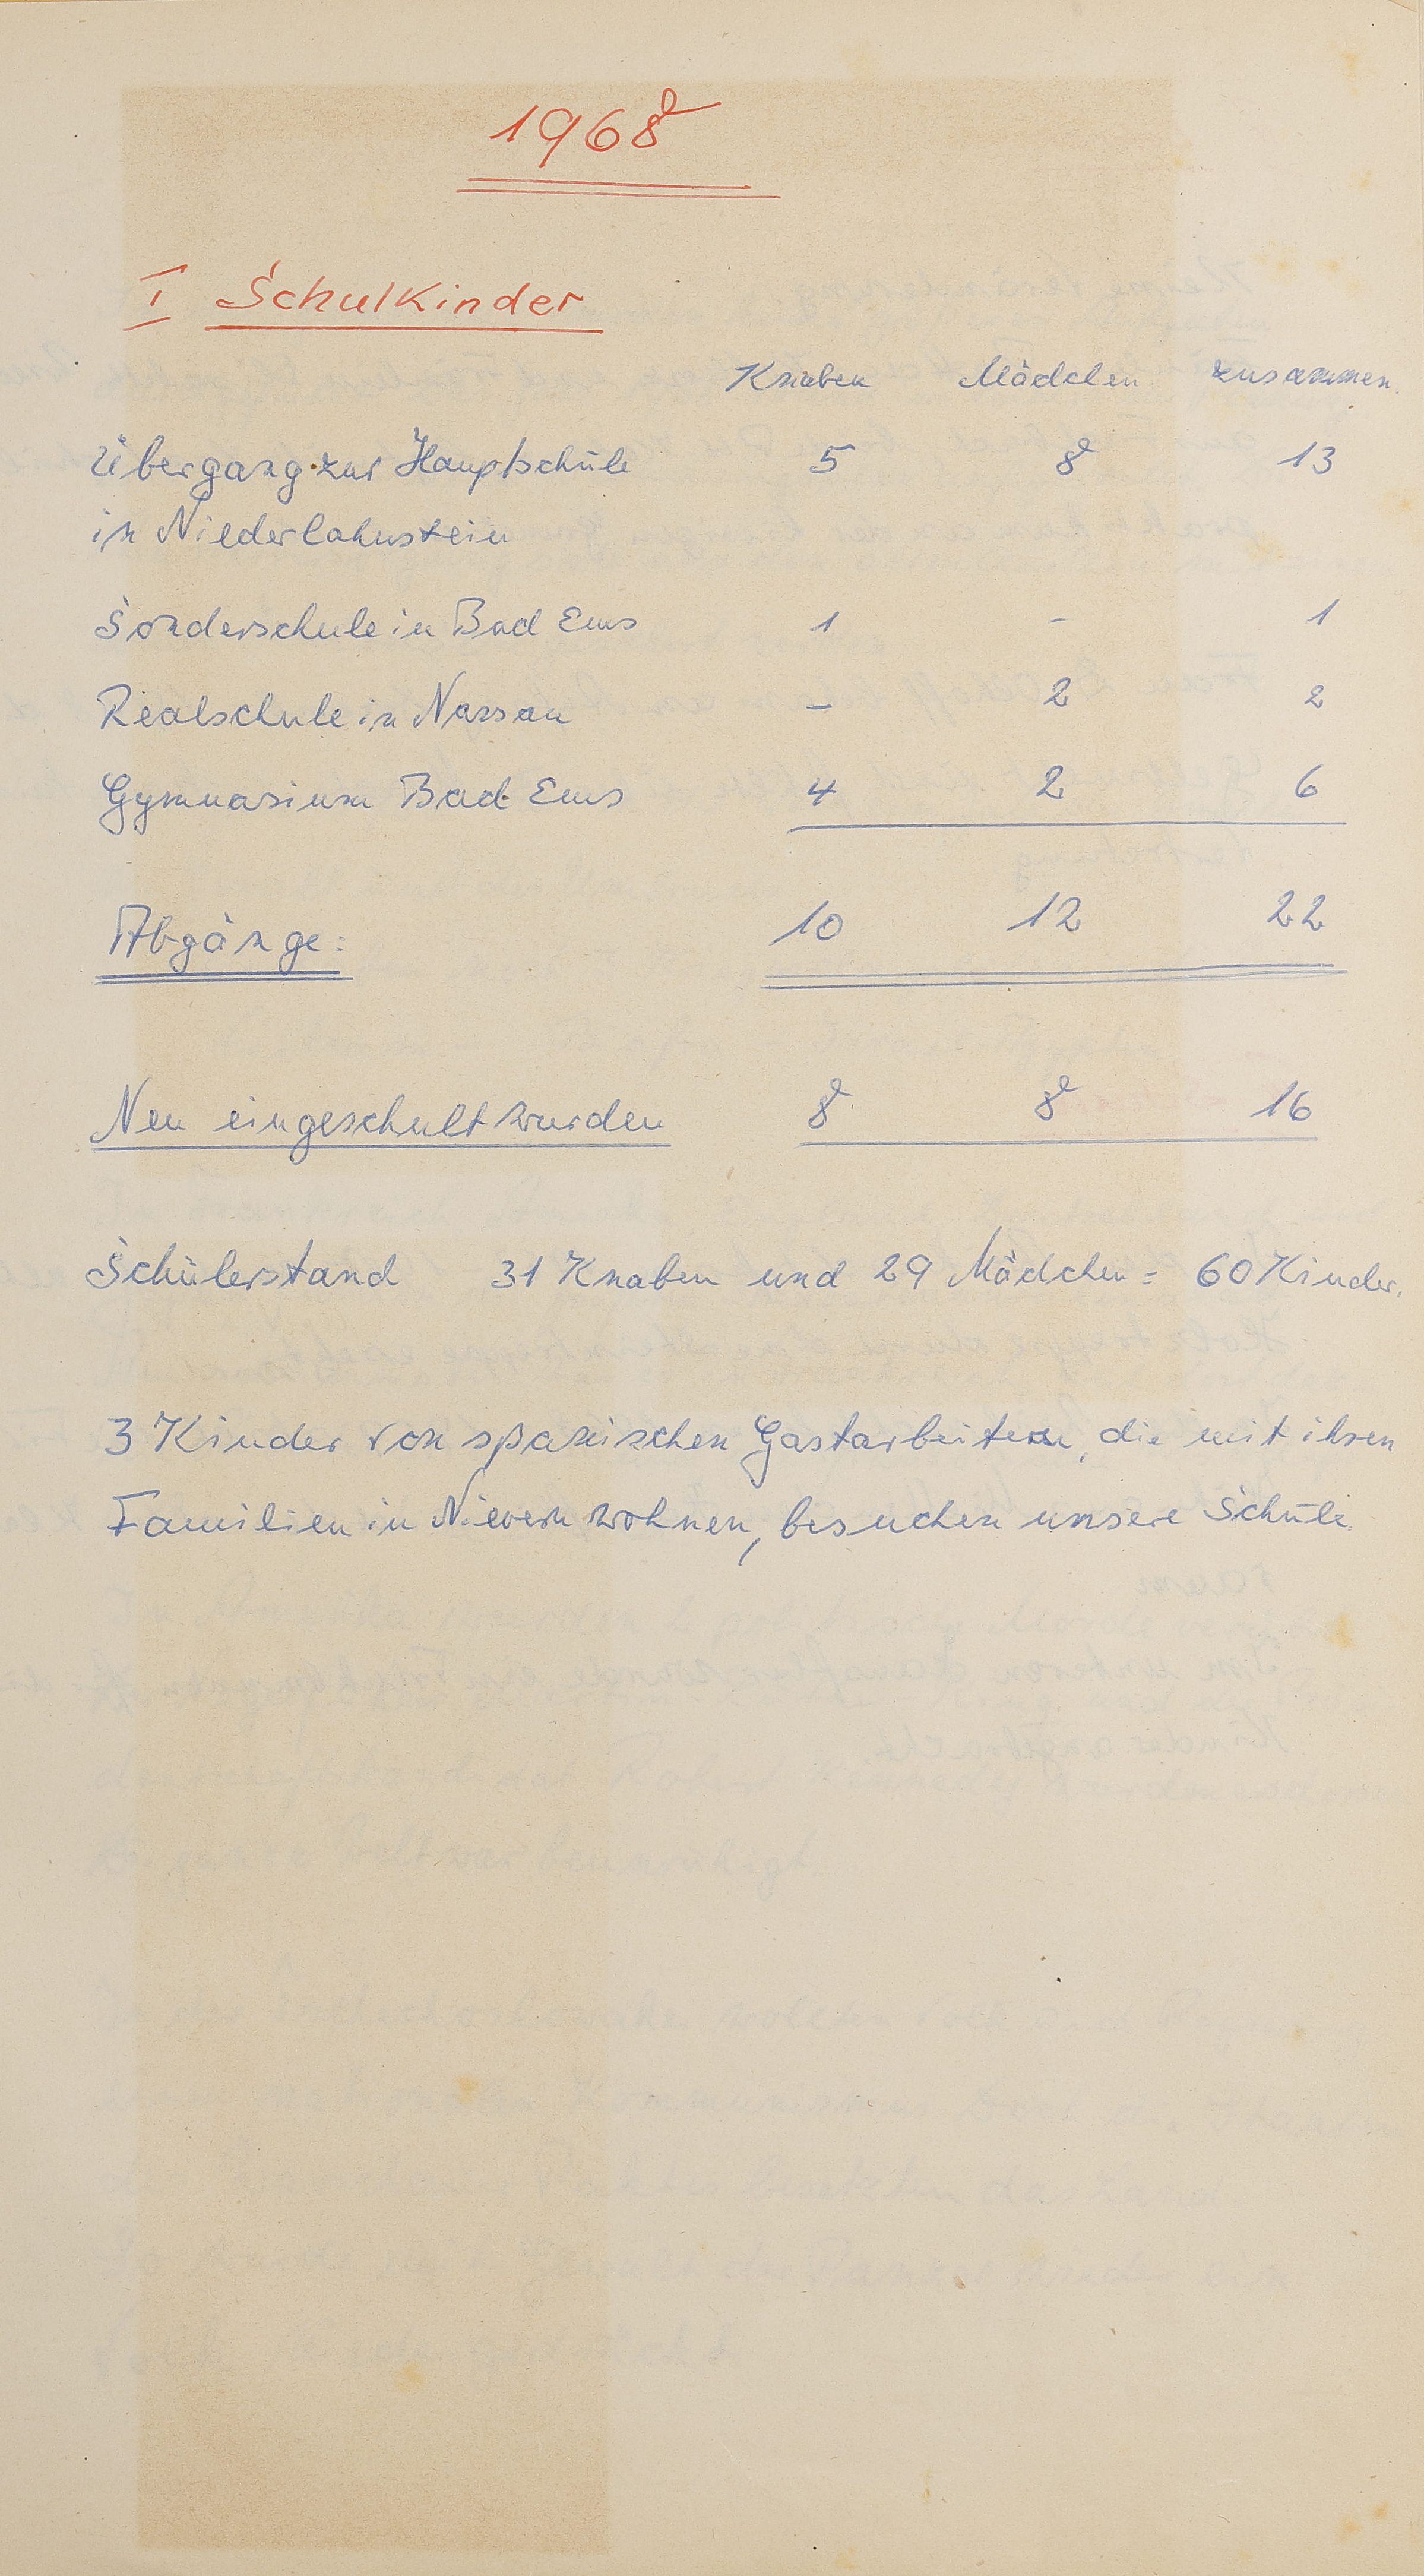 1968
I Schulkinder
Knaben Mädchen zusammen
Übergang zur Hauptschule 5 8 13
in Niederlahnstein
Sonderschule in Bad Ems 1 – 1
Realschule in Nassau – 2 2
Gymnasium Bad Ems 4 2 6
Abgänge: 10 12 22
Neu eingeschult wurden 8 8 16
Schülerstand 31 Knaben und 29 Mädchen = 60 Kinder.
3 Kinder von spanischen Gastarbeitern, die mit ihren
Familien in Nievern wohnen, besuchen unsere Schule.